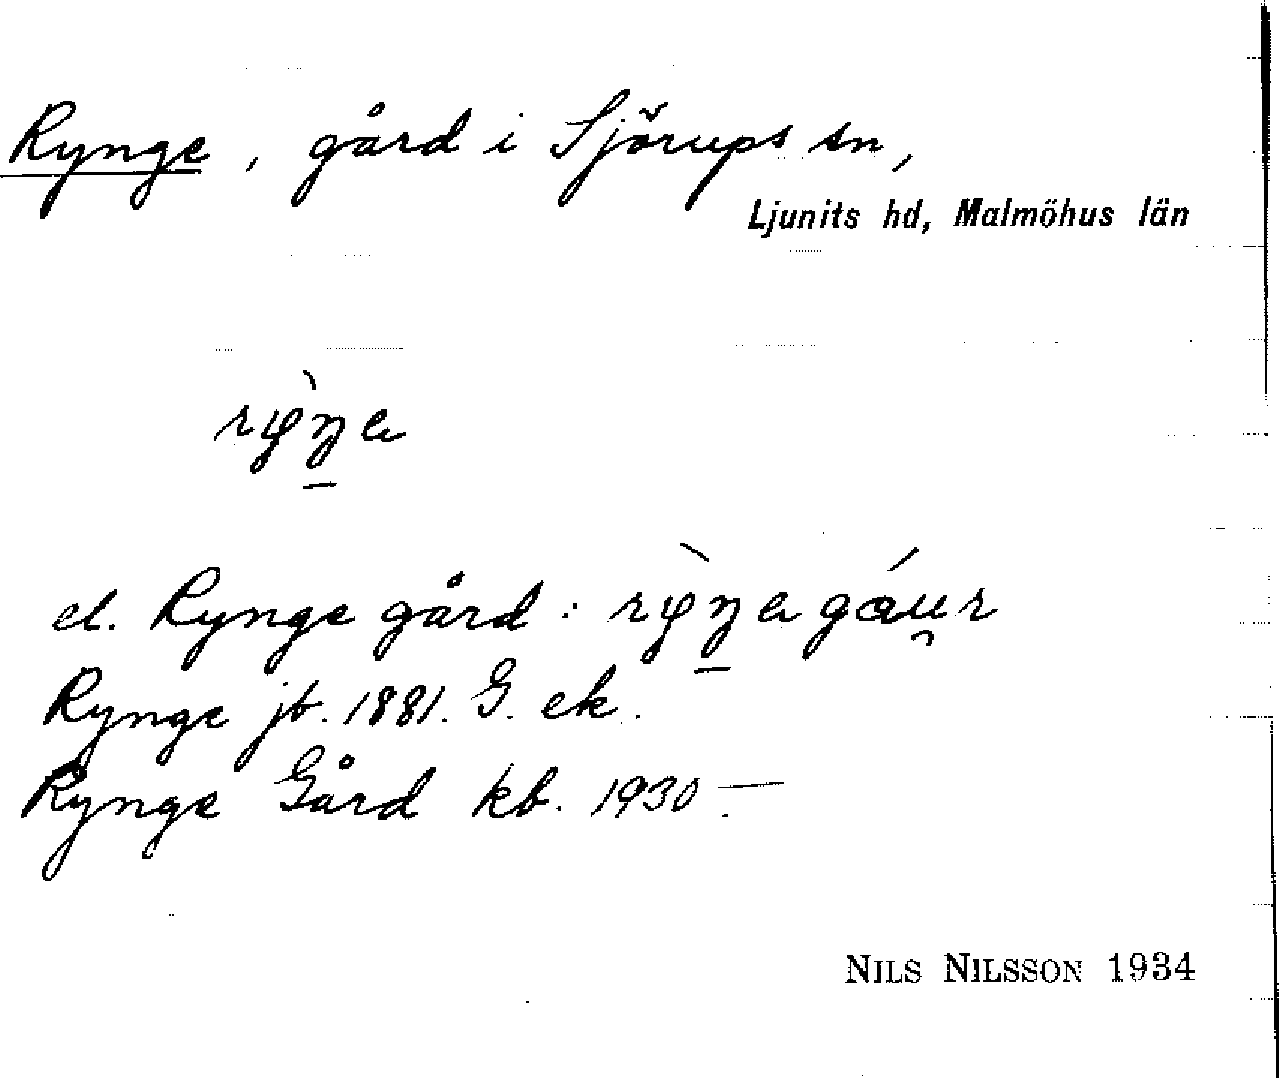 Rynge, gård i Sjörups sn,
Ljunits hd, Malmöhus län
el. Rynge gård:
Rynge jb. 1881. G. ek.
Rynge Gård kb. 1930.—
NILS NILSSON 1934